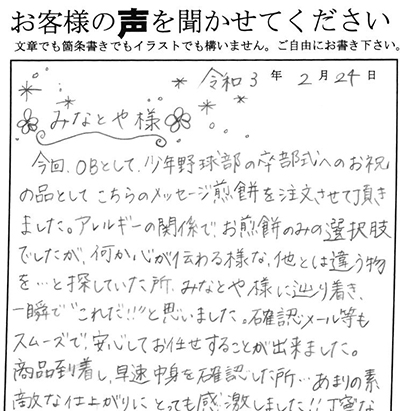 お客様の声を聞かせてください
文章でも箇条書きでもイラストでも構いません。ご自由にお書き下さい。
令和3年2月24日
みなとや様
今回、OBとして、少年野球部の卒部式へのお祝
の品として こちらのメッセージ煎餅を注文させて頂き
ました。アレルギーの関係で、お煎餅のみの選択肢
でしたが、何か心が伝わる様な、他とは違う物
を…と探していた所、みなとや様に辿り着き、
一瞬で"これだ!!"と思いました。確認メール等も
スムーズで、安心してお任せすることが出来ました。
商品到着し、早速中身を確認した所…あまりの素
敵な仕上がりに とっても感激しました!!丁寧な